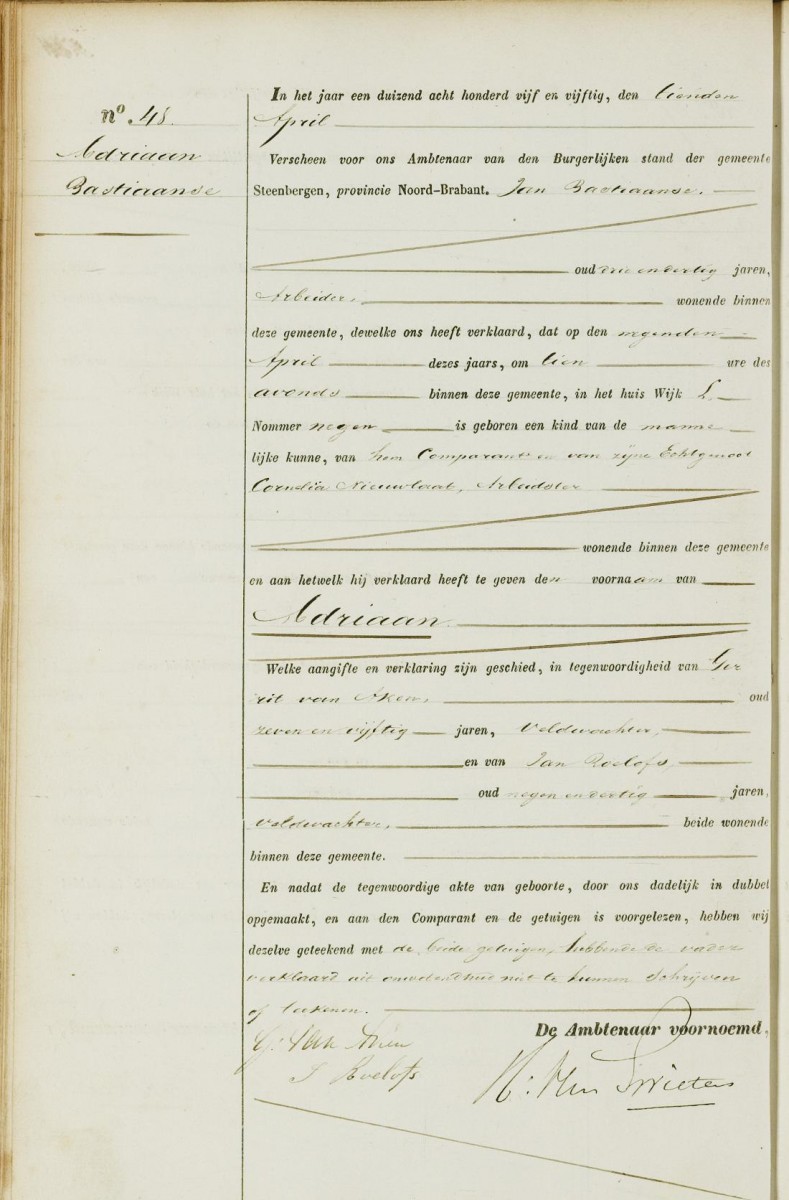 nº 48.
Adriaan
Bastiaanse
In het jaar een duizend acht honderd vijf en vijftig, den tienden
April
Verscheen voor ons Ambtenaar van den Burgerlijken stand der gemeente
Steenbergen, provincie Noord-Brabant. Jan Bastiaanse.
oud drie en dertig jaren,
Arbeider, wonende binnen
deze gemeente, dewelke ons heeft verklaard, dat op den negenden
April dezes jaars, om tien ure des
avonds binnen deze gemeente, in het huis Wijk L.
Nommer negen is geboren een kind van de manne
lijke kunne, van hem Comparant en van zijne Echtgenoot
Cornelia Nieuwlaat, Arbeidster
wonende binnen deze gemeente
en aan hetwelk hij verklaard heeft te geven den voornaam van
Adriaan.
Welke aangifte en verklaring zijn geschied, in tegenwoordigheid van Ger
rit van Aken, oud
zeven en vijftig jaren, Veldwachter,
en van Jan Roelofs,
oud negen en dertig jaren,
veldwachter, beide wonende
binnen deze gemeente.
En nadat de tegenwoordige akte van geboorte, door ons dadelijk in dubbel
opgemaakt, en aan den Comparant en de getuigen is voorgelezen, hebben wij
dezelve geteekend met de beide getuigen, hebbende de vader
verklaard uit onvedendheid niet te kunnen schrijven
of teekenen.
De Ambtenaar voornoemd,
G: Van
J Roelofs